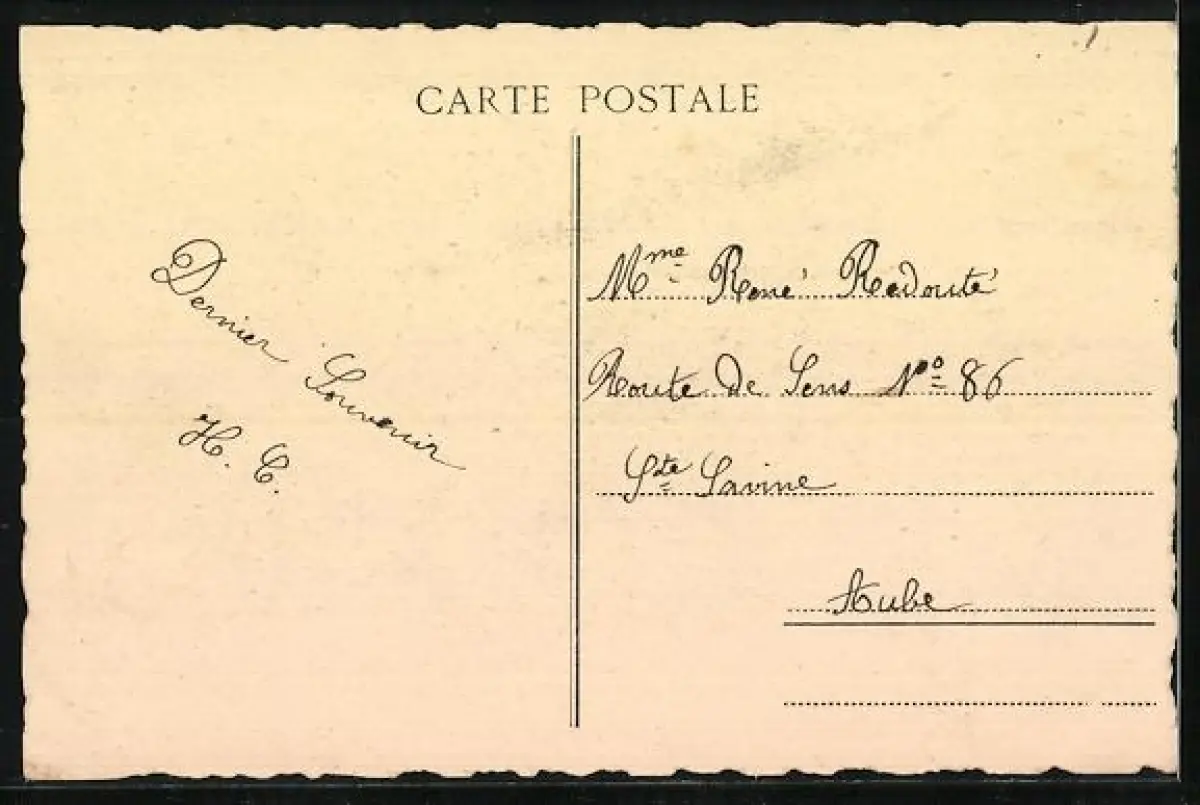 CARTE POSTALE
Dernier Souvenir
H. C.
Mme René Redouté
Route de Sens No 86
Ste Savine
Aube